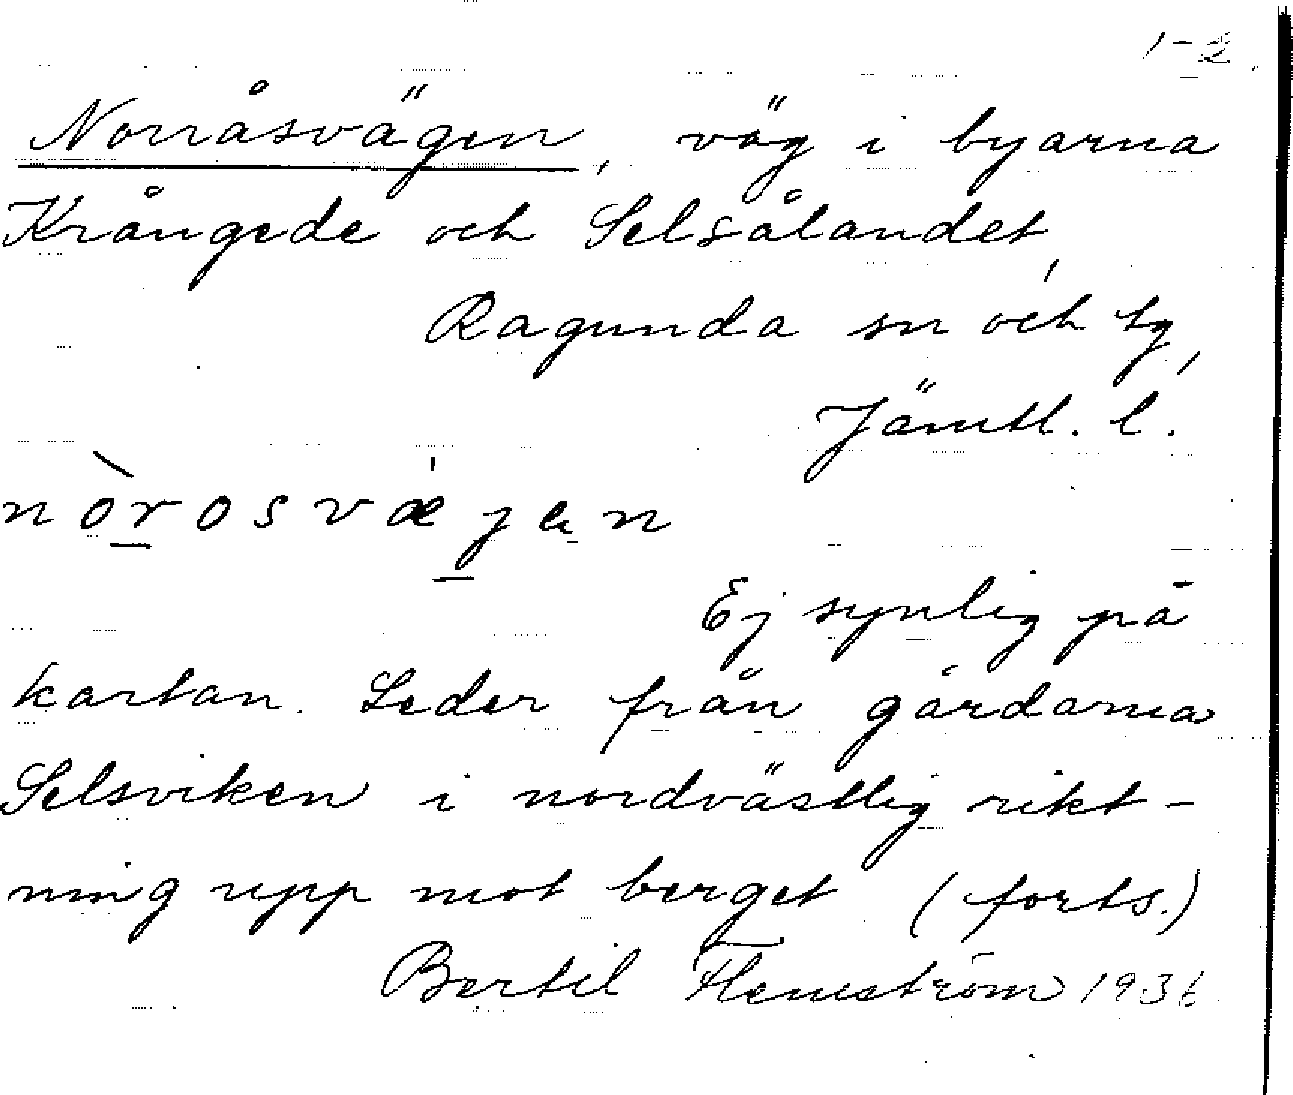 1-2.
Norråsvägen, väg i byarna
Krångede och Selsålandet,
Ragunda sn och tg,
Jämtl. l.
nòrosvæjen
Ej synlig på
kartan. Leder från gårdarna
Selsviken i nordvästlig rikt-
ning upp mot berget (forts.)
Bertil Flemström 1936